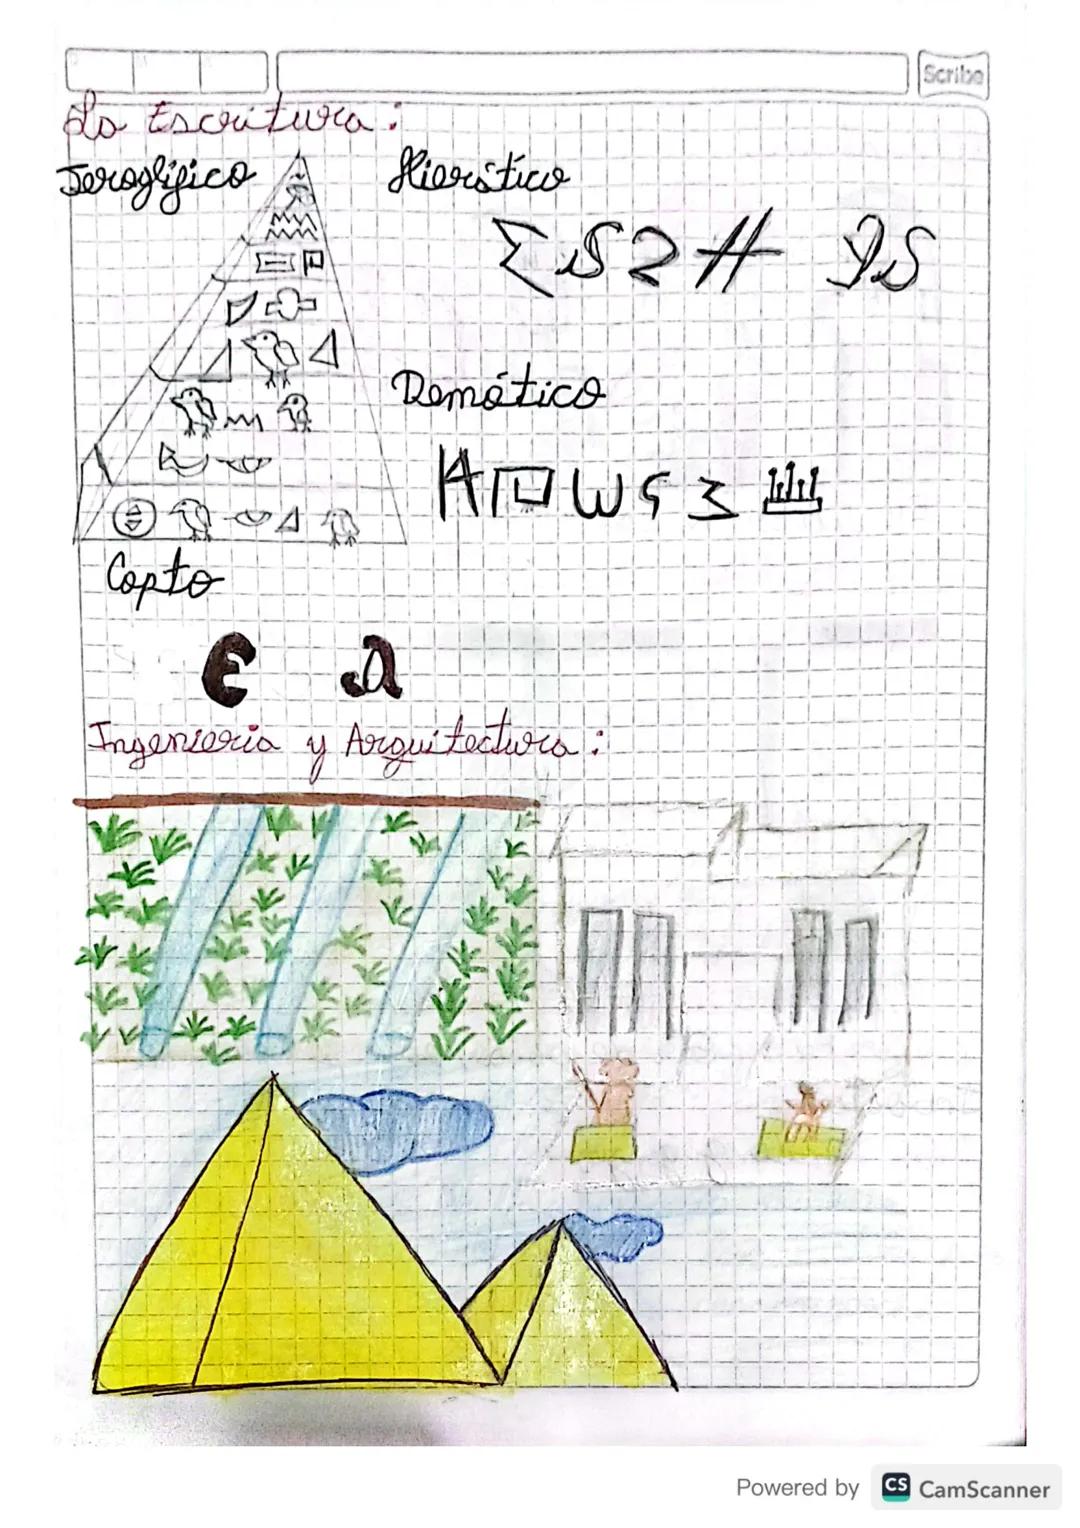 Scribe
La Escritura:
Jeroglífico
Hierático
Demótico
Copto
Ingenieria y Arquitectura:
Powered by CS CamScanner